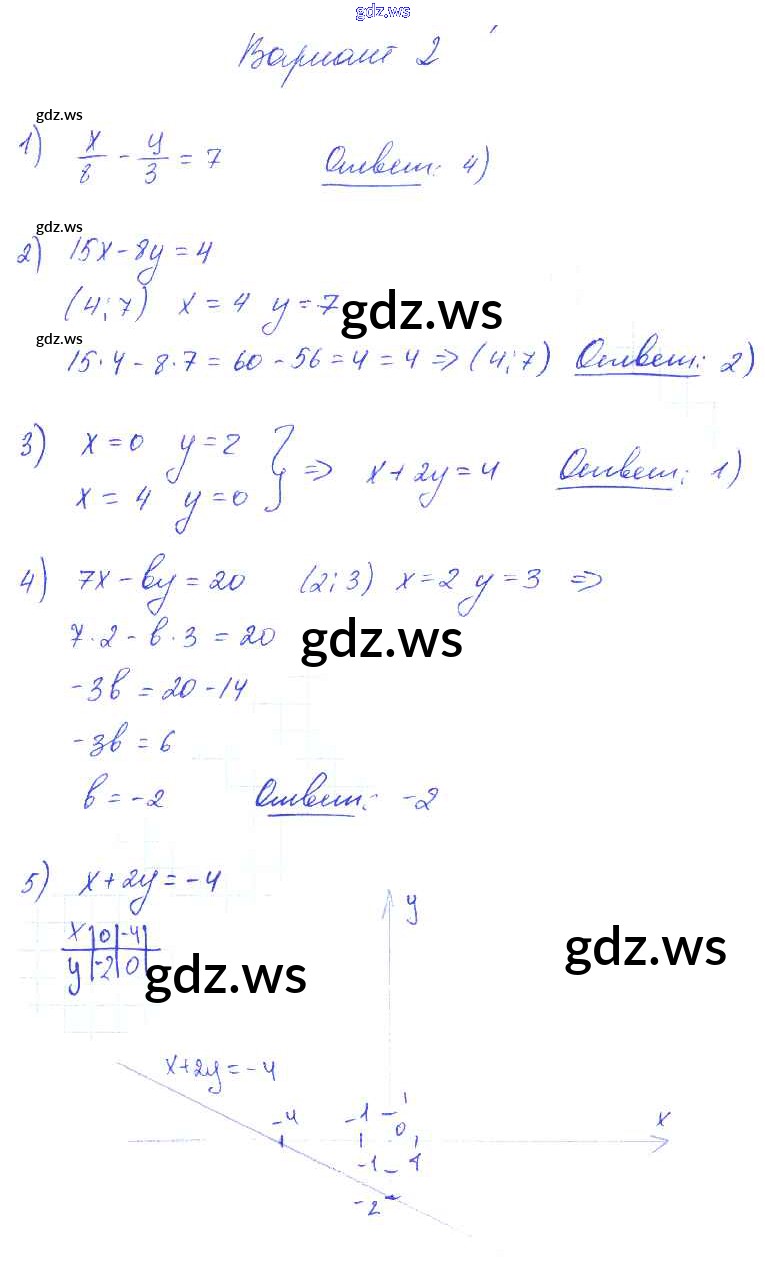 gdz.ws
Вариант 2
gdz.ws
1) x/8 - y/3 = 7 Ответ: 4)
gdz.ws
2) 15x - 8y = 4
(4; 7) x = 4 y = 7
gdz.ws
gdz.ws
15·4 - 8·7 = 60 - 56 = 4 = 4 => (4; 7) Ответ: 2)
3) x = 0 y = 2
x = 4 y = 0 } => x + 2y = 4 Ответ: 1)
4) 7x - by = 20 (2; 3) x = 2 y = 3 =>
7·2 - b·3 = 20
gdz.ws
-3b = 20 - 14
-3b = 6
b = -2 Ответ: -2
5) x + 2y = -4
x | 0 | -4 |
y | -2 | 0 |
gdz.ws
gdz.ws
y
x + 2y = -4
-4 -1 1 0 x
-1 1
-2